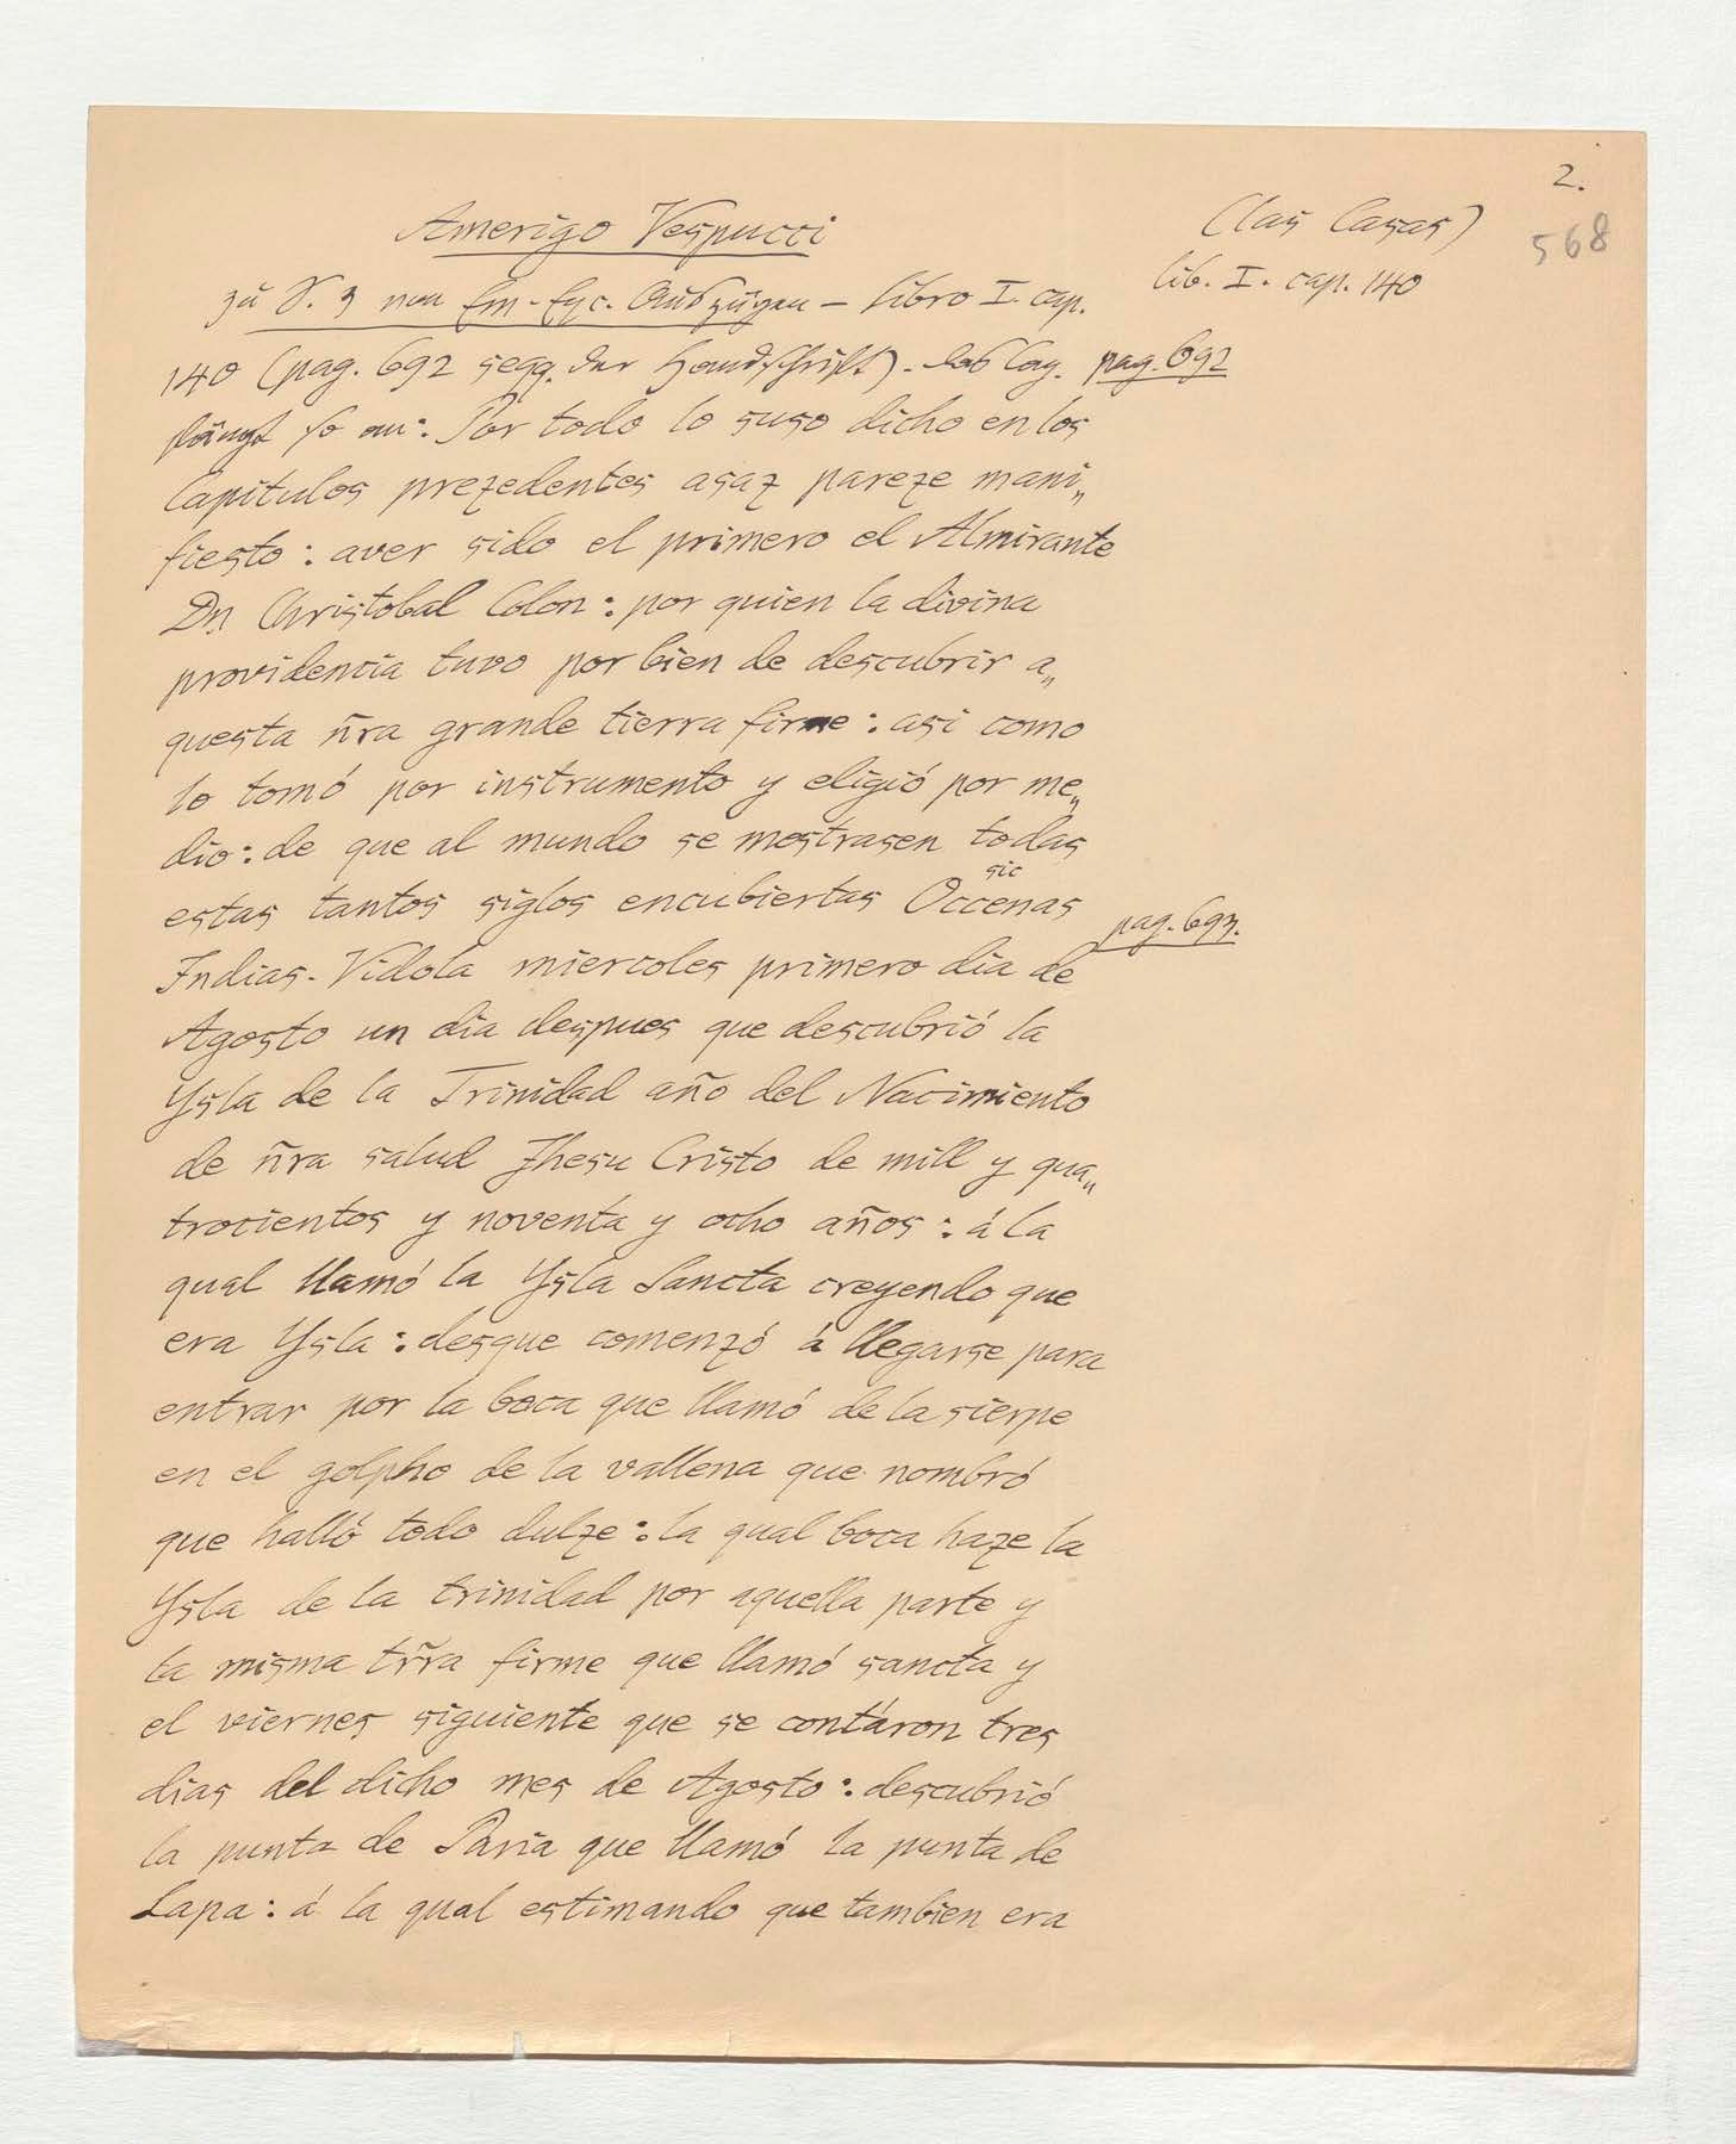 2.
568
Amerigo Vespucci
(Las Casas)
lib. I. cap. 140
zu S. 3 Auszügen – libro I. cap.
140 (pag. 692 seqq. der Handschrift). Das Cap.
pag. 692
fängt so an: Por todo lo suso dicho en los
Capitulos prezedentes asaz pareze mani„
fiesto: aver sido el primero el Almirante
Dn Christobal Colon: por quien la divina
providencia tuvo por bien de descubrir a„
questa ñra grande tierra firme: asi como
lo tomó por instrumento y eligió por me„
dio: de que al mundo se mostrasen todas
sic
estas tantos siglos encubiertas Occenas
pag. 693.
Indias. Vidola miercoles primero dia de
Agosto un dia despues que descubrió la
Ysla de la Trinidad año del Nacimiento
de ñra salud Jhesu Cristo de mill y qua„
trocientos y noventa y ocho años: á la
qual llamó la Ysla Sancta creyendo que
era Ysla: desque comenzó á llegarse para
entrar por la boca que llamó de la sierpe
en el golpho de la vallena que nombró
que halló todo dulze: la qual boca haze la
Ysla de la trinidad por aquella parte y
la misma trr̃a firme que llamó sancta y
el viernes siguiente que se contáron tres
dias del dicho mes de Agosto: descubrió
la punta de Paria que llamó la punta de
Lapa: á la qual estimando que tambien era